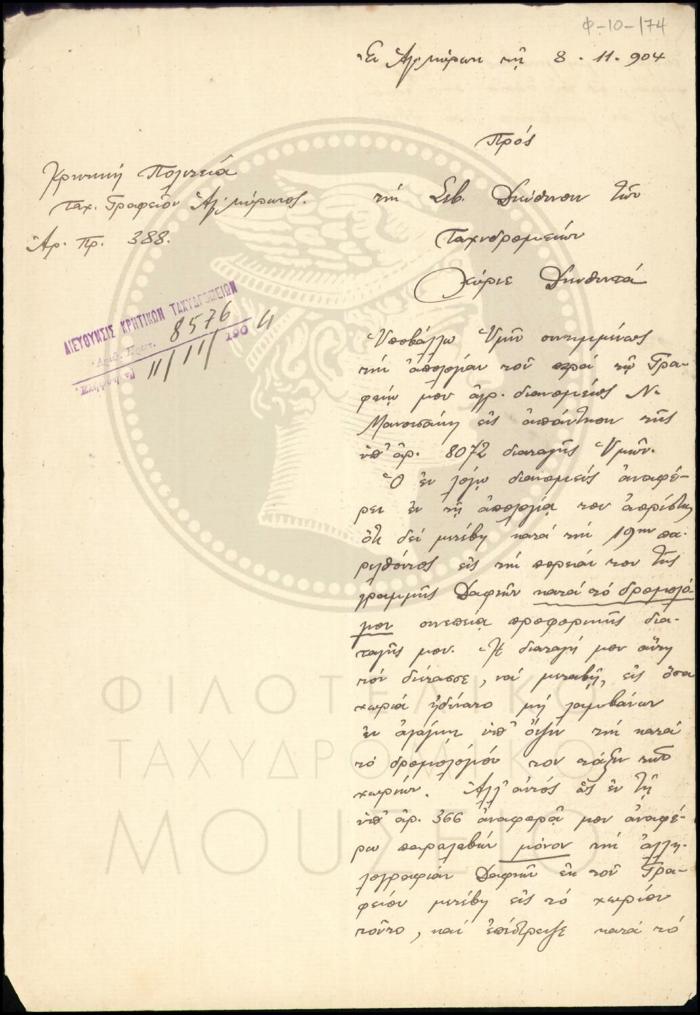 Φ-10-174
Ἐν Ἁγ. Μύρωνι τῇ 8-11-904
Πρὸς
Κρητικὴ Πολιτεία
Ταχ. Γραφεῖον Ἁγ. Μύρωνος.
Ἀρ. Πρ. 388.
τὴν Σεβ. Διεύθυνσιν τῶν
Ταχυδρομείων
Κύριε Διευθυντά
ΔΙΕΥΘΥΝΣΙΣ ΚΡΗΤΙΚΩΝ ΤΑΧΥΔΡΟΜΕΙΩΝ
8576
11/11/ 190 4
Ὑποβάλλω Ὑμῖν συνημμένως
τὴν ἀπολογίαν τοῦ παρὰ τῷ Γρα-
φείῳ μου ἀγρ. διανομέως Ν.
εἰς ἀπάντησιν τῆς
ὑπ' ἀρ. 8072 διαταγῆς Ὑμῶν.
Ὁ ἐν λόγῳ διανομεὺς ἀναφέ-
ρει ἐν τῇ ἀπολογίᾳ του
ὅτι δὲ μετέβη κατὰ τὴν 19ην πα-
ρελθόντος εἰς τὴν πορείαν του τῆς
γραμμῆς Δαφνῶν κατὰ τὸ δρομολό-
γιον συνεπείᾳ προφορικῆς δια-
ταγῆς μου. Ἡ διαταγή μου αὕτη
τὸν διέτασσε, νὰ μεταβῇ, εἰς ὅσα
χωριὰ ἠδύνατο μὴ λαμβάνων
ἐν ἀνάγκῃ ὑπ' ὄψιν τὴν κατὰ
τὸ δρομολόγιον του τάξιν τῶν
χωρίων. Ἀλλ' αὐτὸς ὡς ἐν τῇ
ὑπ' ἀρ. 366 ἀναφορᾷ μου ἀναφέ-
ρω παραλαβὼν μόνον τὴν ἀλλη-
λογραφίαν Δαφνῶν ἐκ τοῦ Γρα-
φείου μετέβη εἰς τὸ χωρίον
τοῦτο, καὶ ἐπέστρεψε κατὰ τὸ
ΦΙΛΟΤΕΛΙΚΟ
ΤΑΧΥΔΡΟΜΙΚΟ
ΜΟΥΣΕΙΟ